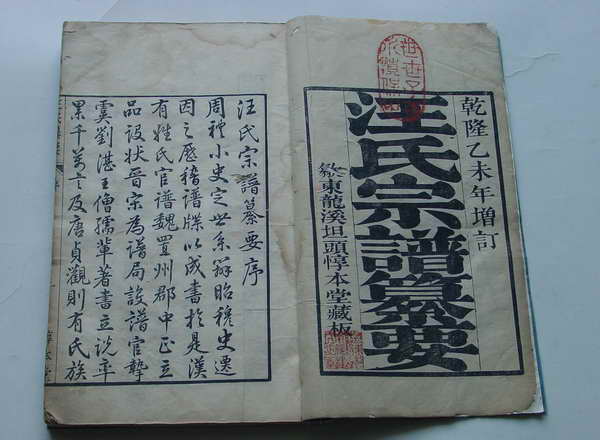 乾隆乙未年增訂
汪氏宗譜纂要
東龍溪坦頭惇本堂藏板
汪氏宗譜纂要序
周禮小史定世系辨昭穆史遷
因之歷稽譜牒以成書於是漢
有姓氏官譜魏置州郡中正立
品設狀晉宋為譜局設譜官摯
虞劉湛王僧孺輩著書立說
累千萬言及唐貞觀則有氏族